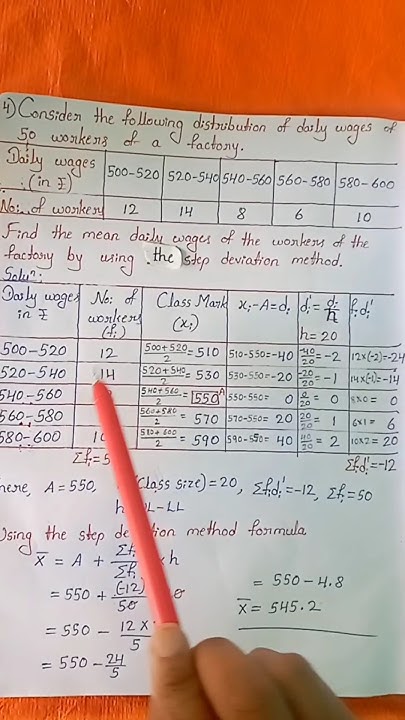 4) Consider the following distribution of daily wages of
50 workers of a factory.
Daily wages (in ₹) 500-520 520-540 540-560 560-580 580-600
No: of workers 12 14 8 6 10
Find the mean daily wages of the workers of the
factory by using the step deviation method.
Solun:
Daily wages in ₹ No: of workers (fi) Class Mark (xi) xi-A=di di'=di/h h=20 fidi'
500-520 12 500+520/2=510 510-550=-40 -40/20=-2 12x(-2)=-24
520-540 14 520+540/2=530 530-550=-20 -20/20=-1 14x(-1)=-14
540-560 540+560/2=550 A 550-550=0 0/20=0 8x0=0
560-580 560+580/2=570 570-550=20 20/20=1 6x1=6
580-600 10 580+600/2=590 590-550=40 40/20=2 10x2=20
Σfi=5 Σfidi'=-12
here, A=550, (Class size)=20, Σfidi'=-12, Σfi=50
h L-LL
Using the step deviation method formula
X̄ = A + Σfidi'/Σfi x h
= 550 + (-12)/50
= 550 - 12x/5
= 550 - 24/5
= 550-4.8
X̄ = 545.2